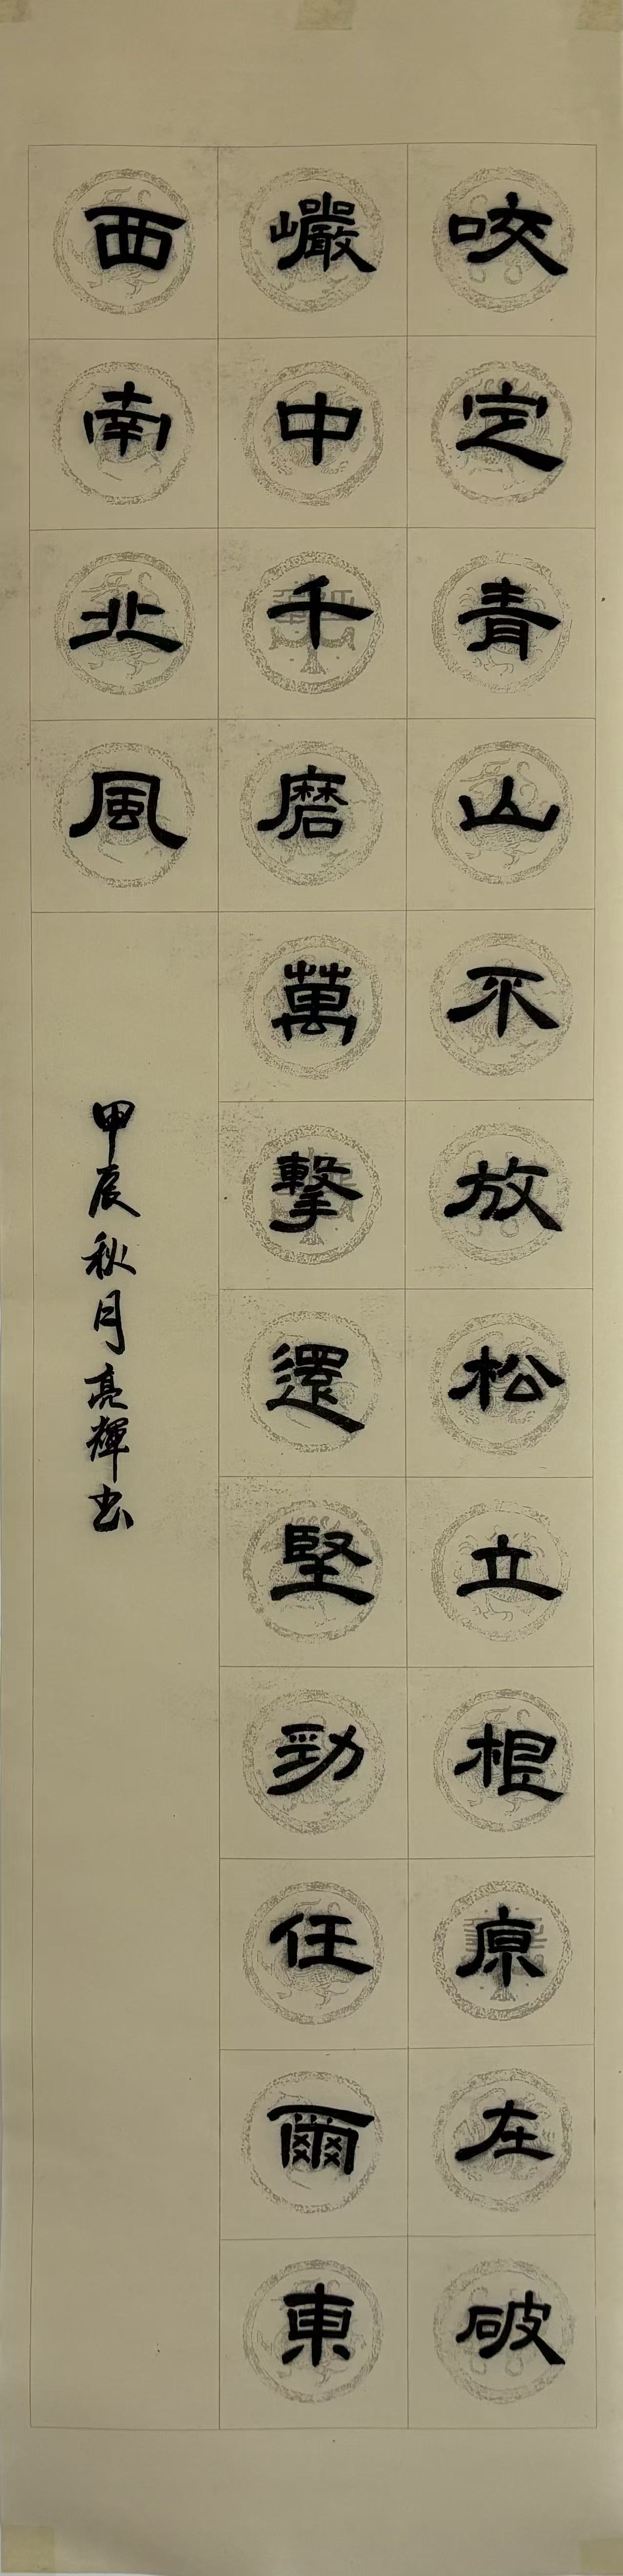 咬定青山不放松立根原在破
巗中千磨萬擊還堅勁任爾東
西南北風
甲辰秋月亮輝书